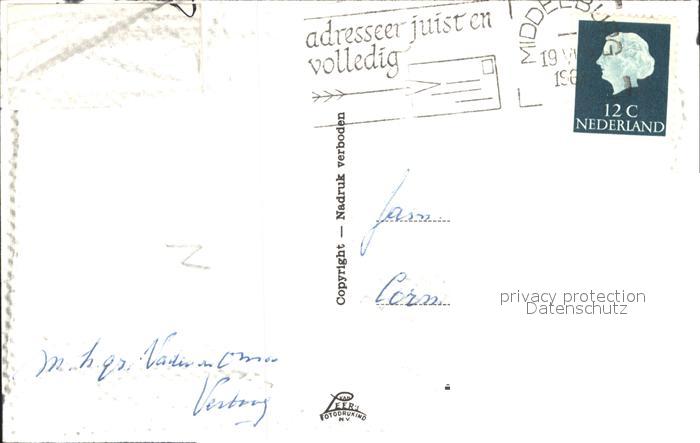 adresseer juist en
volledig
MIDDELBURG
19 VI
196
12 C
NEDERLAND
Copyright — Nadruk verboden
Fam.
Corn
privacy protection
Datenschutz
m. h. gr. Vader en Oma
VAN
LEER'S
FOTODRUKIND
N.V.